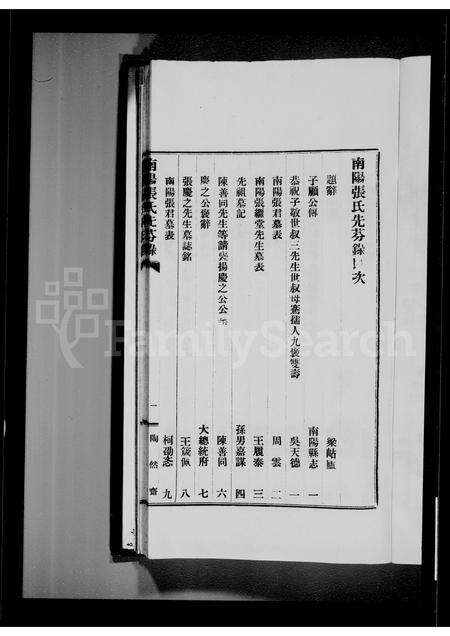 南陽張氏先芬錄目次
題辭 梁岵廬
子顧公傳 南陽縣志 一
恭祝子敬世叔三先生世叔母老孺人九褒雙壽 吳天德 一
南陽張君墓表 周雲 二
南陽張繼堂先生墓表 王履泰 三
先祖墓記 孫男嘉謀 四
陳善同先生等請褒揚慶之公公呈 陳善同 六
慶之公褒辭 大總統府 七
張慶之先生墓誌銘 王箴佩 八
南陽張君墓表 柯劭忞 九
南陽張氏先芬錄
一
陶然齋
FamilySearch